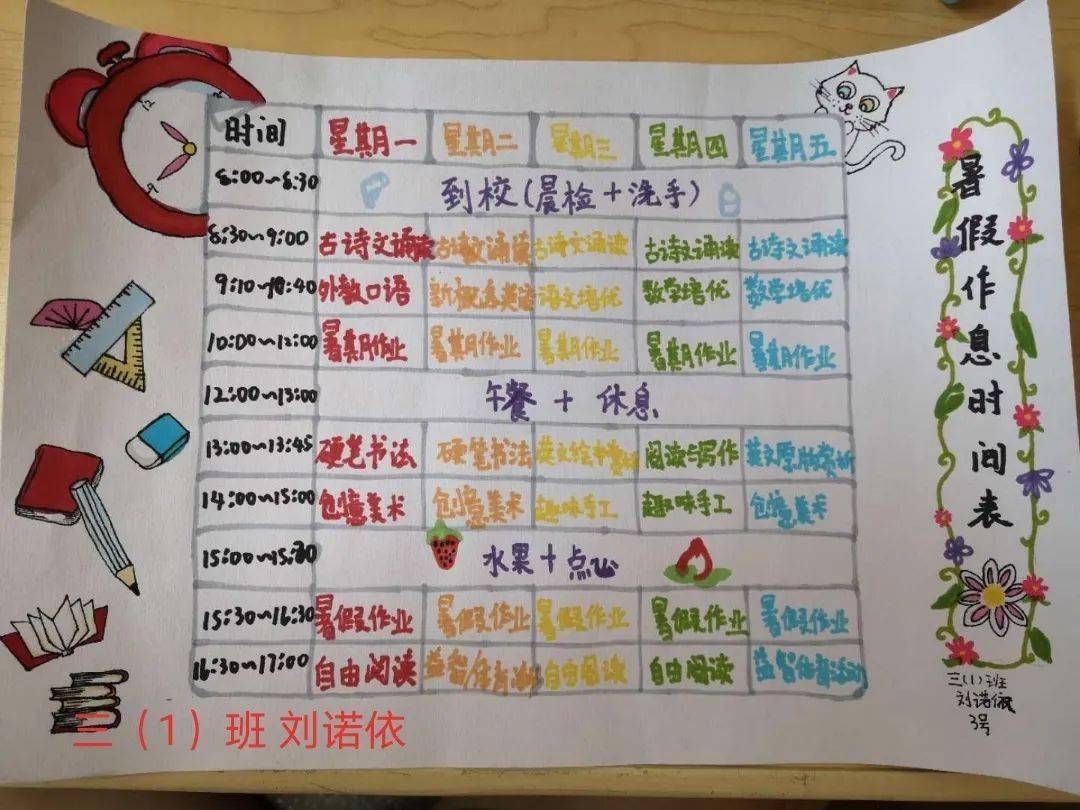 时间 星期一 星期二 星期三 星期四 星期五
8:00~8:30 到校(晨检+洗手)
8:30~9:00 古诗文诵读 古诗文诵读 古诗文诵读 古诗文诵读 古诗文诵读
9:10~10:40 外教口语 新概念英语 语文培优 数学培优 数学培优
10:00~12:00 暑期作业 暑期作业 暑期作业 暑期作业 暑期作业
12:00~13:00 午餐+休息
13:00~13:45 硬笔书法 硬笔书法 英文绘本 阅读与写作 英文原版赏析
14:00~15:00 创意美术 创意美术 趣味手工 趣味手工 创意美术
15:00~15:30 水果+点心
15:30~16:30 暑假作业 暑假作业 暑假作业 暑假作业 暑假作业
16:30~17:00 自由阅读 益智体育活动 自由阅读 自由阅读 益智体育活动
暑假作息时间表
三(1)班
刘诺依
3号
三（1）班 刘诺依